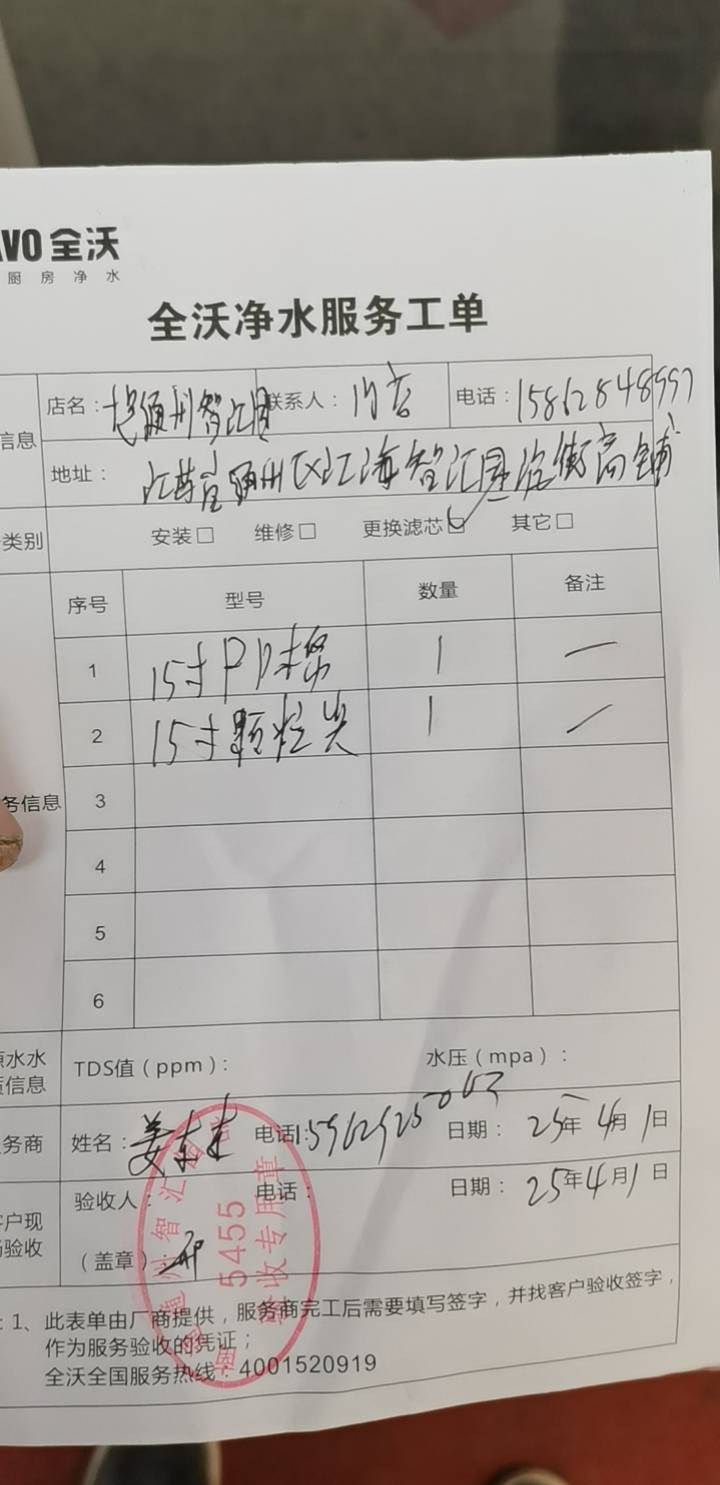 VO 全沃
厨房净水
全沃净水服务工单
信息
店名：通州智汇园 联系人：门店 电话：15862848557
地址：江苏省通州区江海智汇园 街商铺
类别
安装□ 维修□ 更换滤芯☑ 其它□
序号 型号 数量 备注
1 15寸PP棉 1 一
2 15寸颗粒炭 1 一
务信息
3
4
5
6
原水水
质信息
TDS值（ppm）： 水压（mpa）：
务商
姓名：姜 电话： 日期：25年4月1日
客户现
场验收
验收人： 电话： 日期：25年4月1日
（盖章）
通州智汇
5455
验收专用章
：1、此表单由厂商提供，服务商完工后需要填写签字，并找客户验收签字，
作为服务验收的凭证；
全沃全国服务热线：4001520919